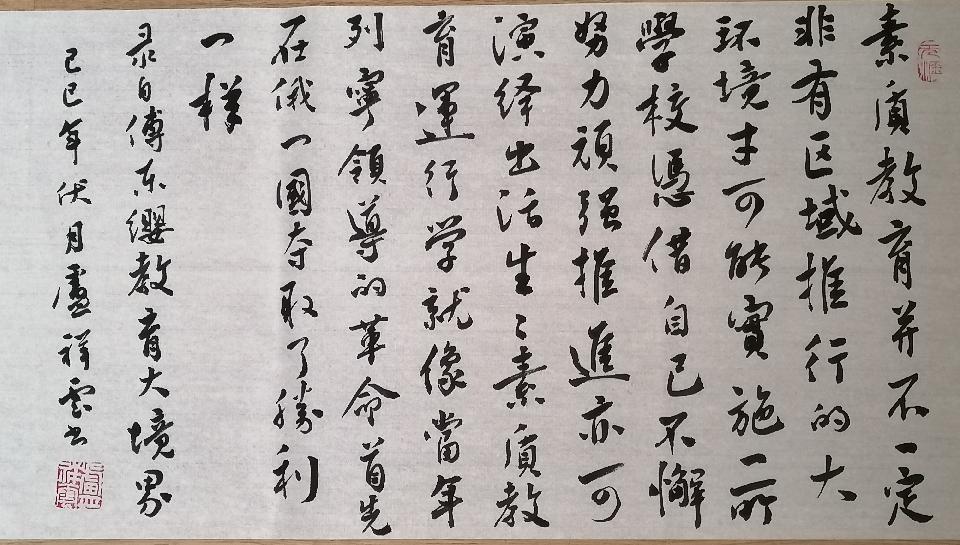 素質教育并不一定
非有区域推行的大
环境才可能實施一所
學校憑借自己不懈
努力頑强推進亦可
演绎出活生〻素質教
育運行学就像當年
列寧領導的革命首先
在俄一國夺取了勝利
一樣
录自傅东缨教育大境界
己巳年伏月盧祥雲书